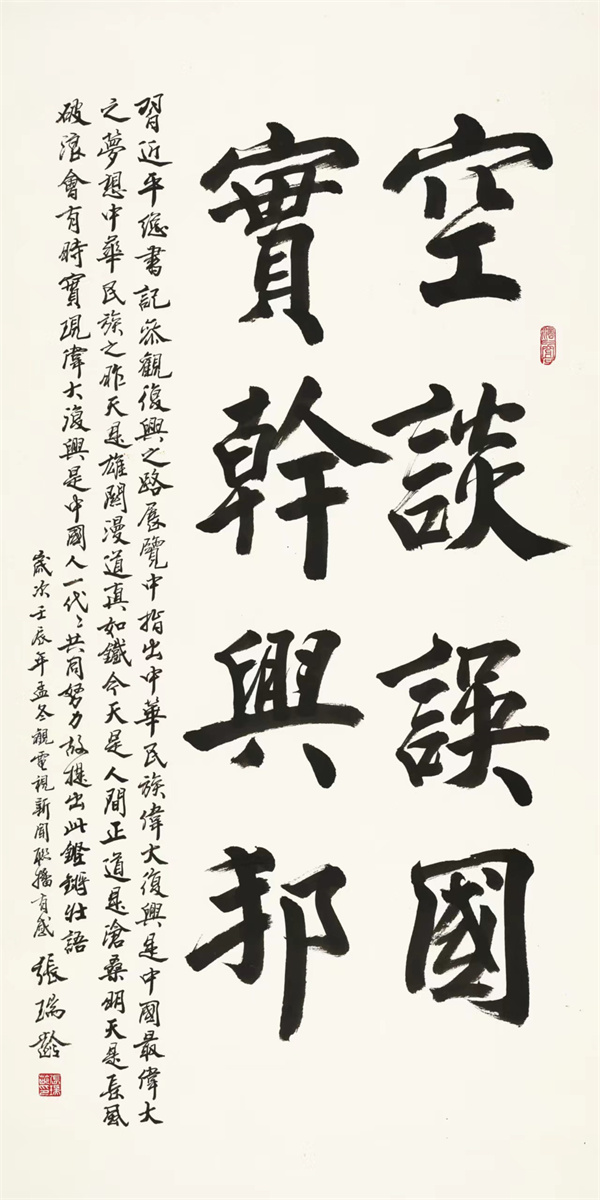 空談誤國
實幹興邦
習近平總書記參觀復興之路展覽中指出中華民族偉大復興是中國最偉大
之夢想中華民族之昨天是雄關漫道真如鐵今天是人間正道是滄桑明天是長風
破浪會有時實現偉大復興是中國人一代〻共同努力故提出此鏗鏘壯語
歲次壬辰年孟冬視電視新聞聯播有感 張瑞齡